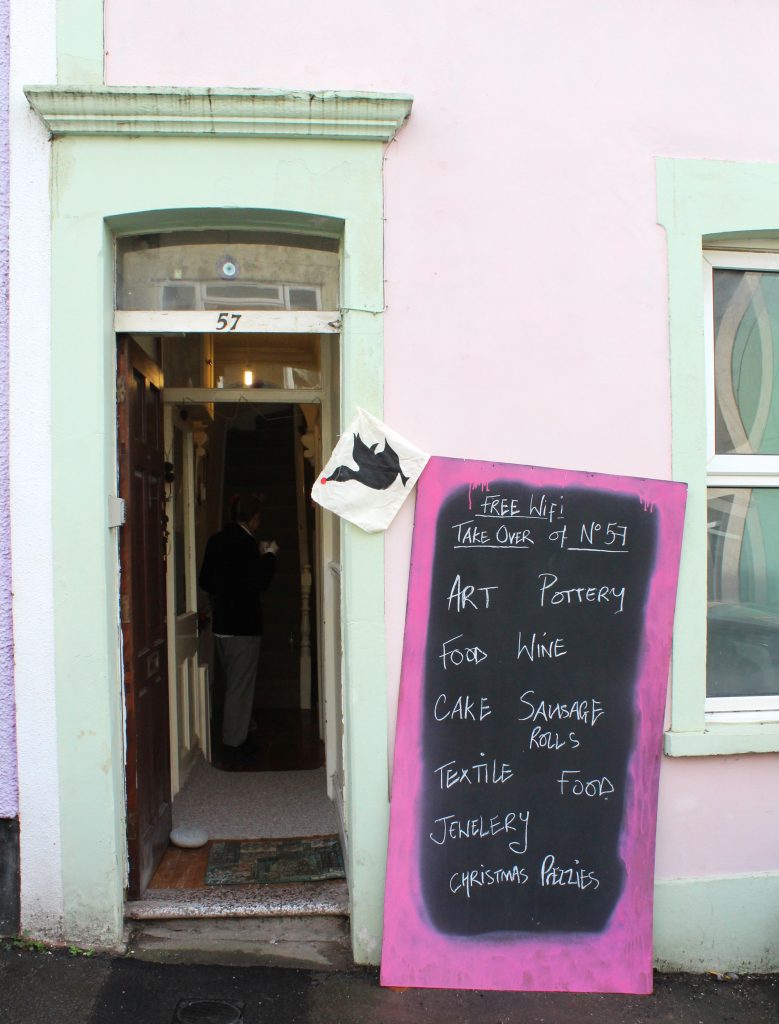 57
FREE WiFi
TAKE OVER of No 57
ART POTTERY
FOOD WINE
CAKE SAUSAGE
ROLLS
TEXTILE FOOD
JEWELERY
CHRISTMAS PREZZIES